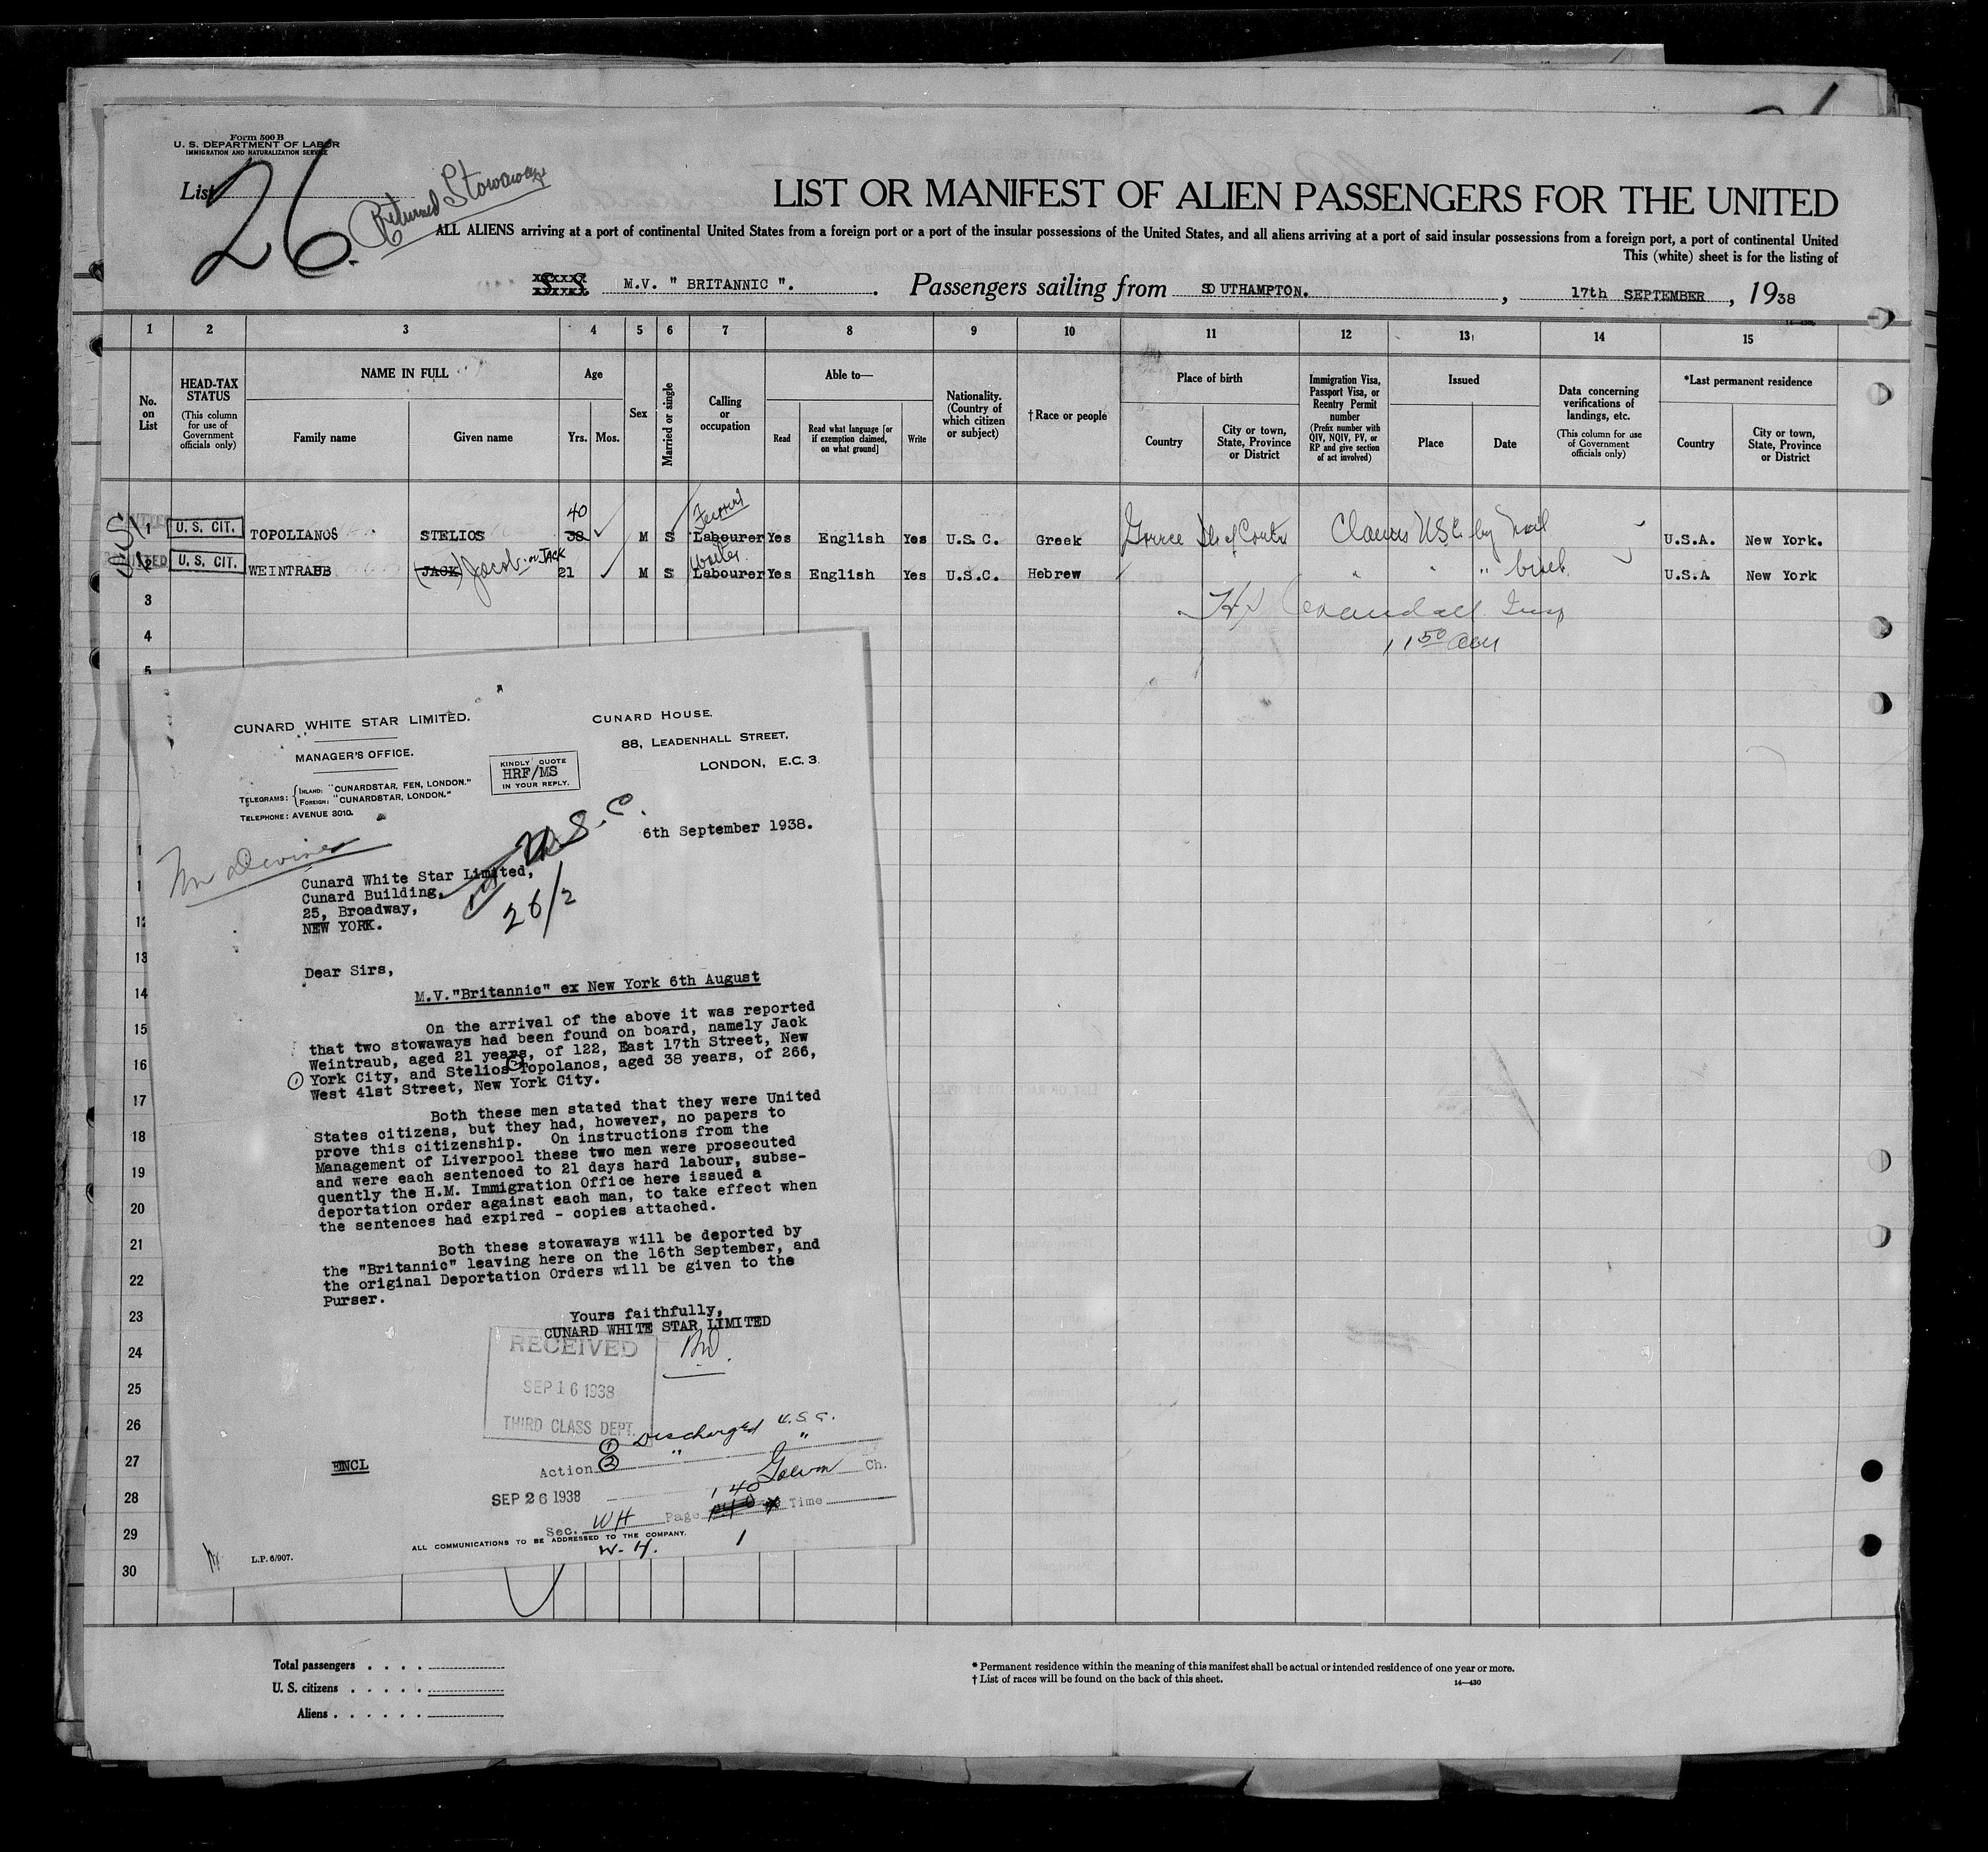 Form 500 B
U. S. DEPARTMENT OF LABOR
IMMIGRATION AND NATURALIZATION SERVICE
List
26.
Returned Stowaways
LIST OR MANIFEST OF ALIEN PASSENGERS FOR THE UNITED
ALL ALIENS arriving at a port of continental United States from a foreign port or a port of the insular possessions of the United States, and all aliens arriving at a port of said insular possessions from a foreign port, a port of continental United
This (white) sheet is for the listing of
S S M.V. " BRITANNIC ". Passengers sailing from SOUTHAMPTON. , 17th SEPTEMBER , 1938
1 2 3 4 5 6 7 8 9 10 11 12 13 14 15
No. on List
HEAD-TAX STATUS
(This column for use of Government officials only)
NAME IN FULL
Family name
Given name
Age
Yrs. Mos.
Sex
Married or single
Calling or occupation
Able to—
Read
Read what language [or if exemption claimed, on what ground]
Write
Nationality. (Country of which citizen or subject)
†Race or people
Place of birth
Country
City or town, State, Province or District
Immigration Visa, Passport Visa, or Reentry Permit number
(Prefix number with QIV, NQIV, PV, or RP and give section of act involved)
Issued
Place
Date
Data concerning verifications of landings, etc.
(This column for use of Government officials only)
*Last permanent residence
Country
City or town, State, Province or District
40
1 U. S. CIT. TOPOLIANOS STELIOS 38 M S Labourer Yes English Yes U.S.C. Greek Greece Claims USC by U.S.A. New York.
2 U. S. CIT. WEINTRAUB (JACK) Jacob or JACK 21 M S Labourer Yes English Yes U.S.C. Hebrew " " " birth U.S.A New York
3
Crandall Insp
4
11 50 AM
5
CUNARD WHITE STAR LIMITED.
MANAGER'S OFFICE.
TELEGRAMS: INLAND: "CUNARDSTAR, FEN, LONDON."
FOREIGN: "CUNARDSTAR, LONDON."
TELEPHONE: AVENUE 3010.
KINDLY QUOTE
HRF/MS
IN YOUR REPLY.
CUNARD HOUSE.
88, LEADENHALL STREET,
LONDON, E.C. 3.
U.S.C.
6th September 1938.
26/2
Cunard White Star Limited,
Cunard Building,
25, Broadway,
NEW YORK.
Dear Sirs,
M.V."Britannic" ex New York 6th August
On the arrival of the above it was reported
that two stowaways had been found on board, namely Jack
Weintraub, aged 21 years, of 122, East 17th Street, New
① York City, and Stelios Topolanos, aged 38 years, of 266,
West 41st Street, New York City.
Both these men stated that they were United
States citizens, but they had, however, no papers to
prove this citizenship. On instructions from the
Management of Liverpool these two men were prosecuted
and were each sentenced to 21 days hard labour, subse-
quently the H.M. Immigration Office here issued a
deportation order against each man, to take effect when
the sentences had expired - copies attached.
Both these stowaways will be deported by
the "Britannic" leaving here on the 16th September, and
the original Deportation Orders will be given to the
Purser.
Yours faithfully,
CUNARD WHITE STAR LIMITED
RECEIVED
SEP 16 1938
THIRD CLASS DEPT.
① Discharged U.S.C.
ENCL
Action ② " "
Ch.
SEP 26 1938
1 40
Sec. WH Page Time
ALL COMMUNICATIONS TO BE ADDRESSED TO THE COMPANY.
W-H. 1
L.P. 6/907.
13
14
15
16
17
18
19
20
21
22
23
24
25
26
27
28
29
30
Total passengers
U. S. citizens
Aliens
* Permanent residence within the meaning of this manifest shall be actual or intended residence of one year or more.
† List of races will be found on the back of this sheet.
14—430